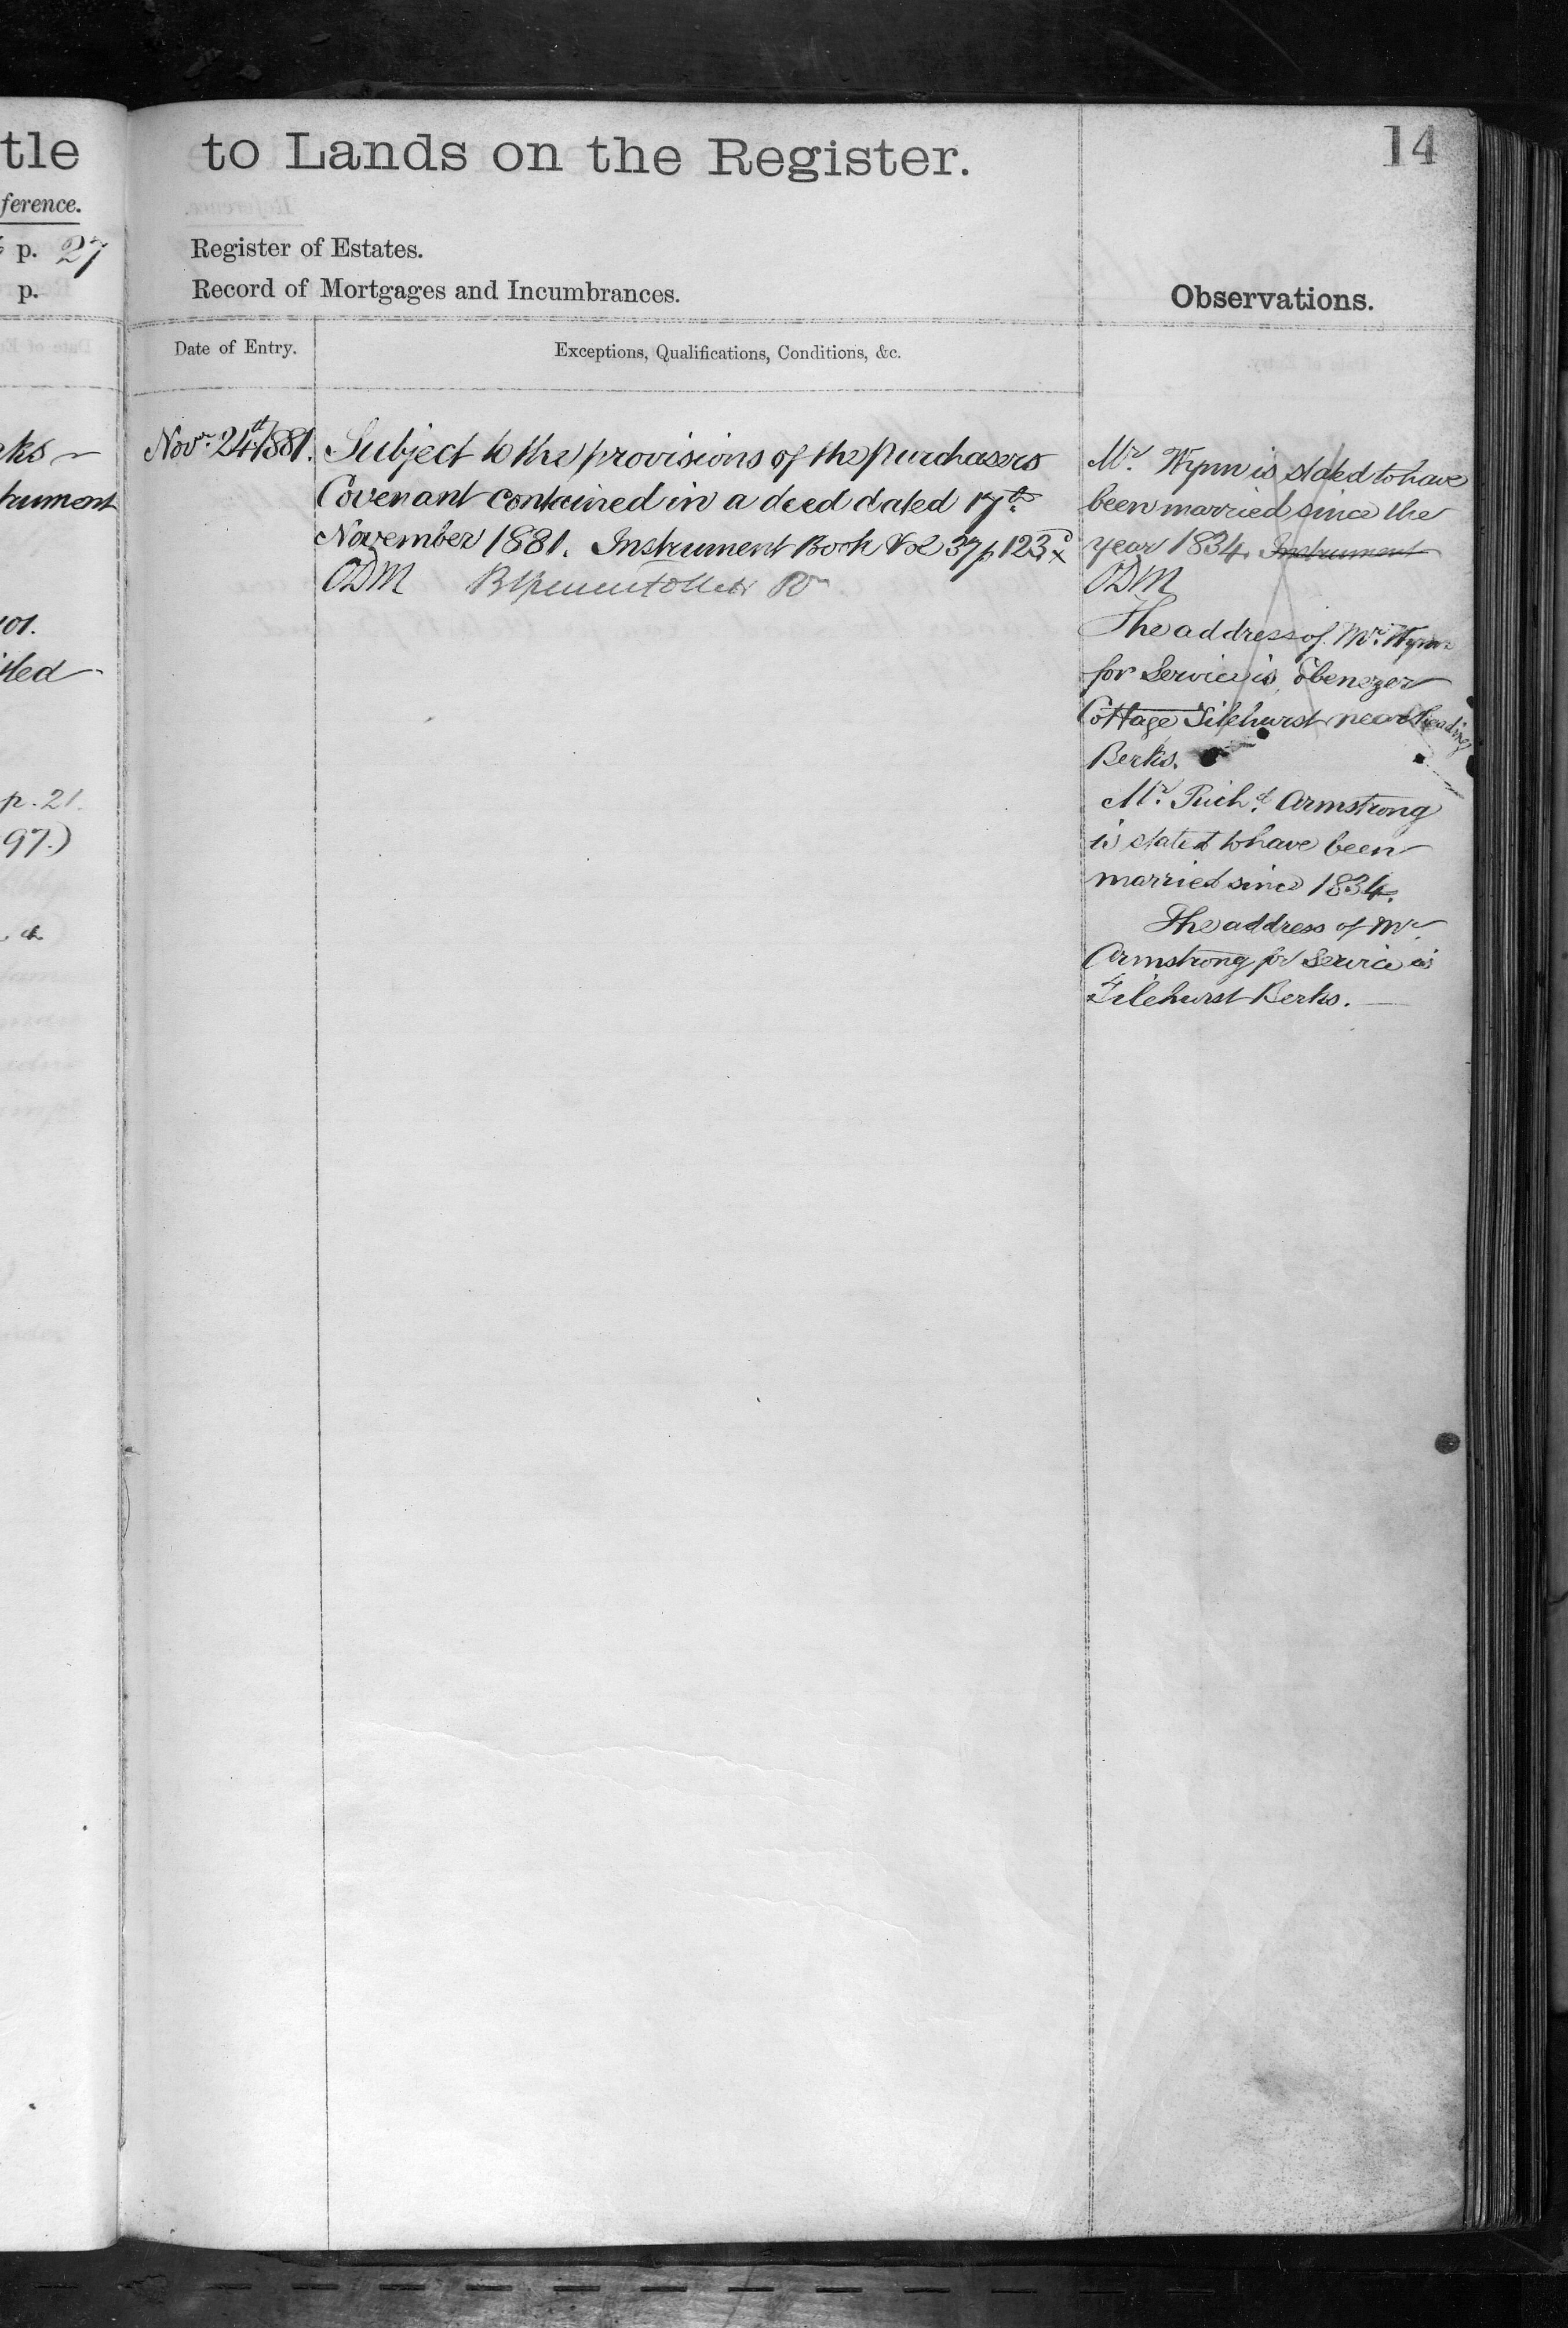 tle
ference.
p. 27
p.
ks
hument
101.
tled
p. 21.
97.)
to Lands on the Register.
14
Register of Estates.
Record of Mortgages and Incumbrances.
Observations.
Date of Entry.
Exceptions, Qualifications, Conditions, &c.
Novr. 24th 1881.
Subject to the provisions of the purchasers
Covenant contained in a deed dated 17th
November 1881. Instrument Book Vol 37 p 123
ODM
Mr. Wynn is stated to have
been married since the
year 1834. Instrument
ODM
The address of Mr. Wynn
for Service is Ebenezer
Cottage Tilehurst near Reading
Berks.
Mr. Richd. Armstrong
is stated to have been
married since 1834.
The address of Mr.
Armstrong for Service is
Tilehurst Berks.